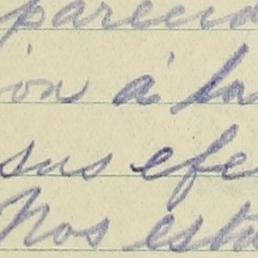 parecid
ión á la
sus efe
Nos esta